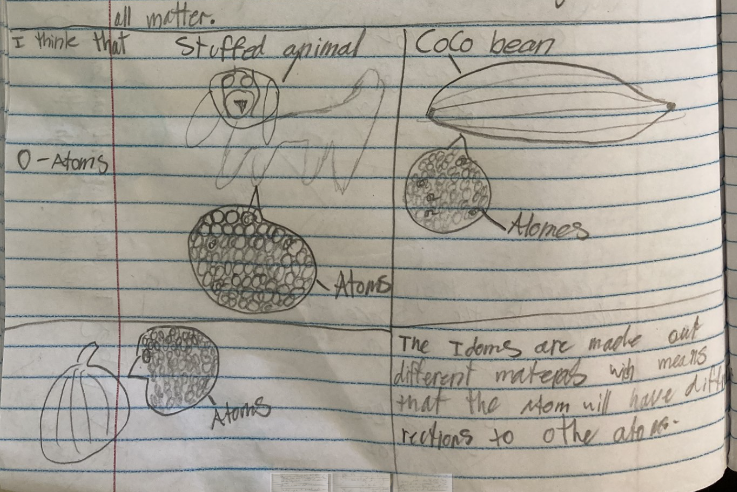 all matter.
I think that
Stuffed animal
Coco bean
O - Atoms
Atomes
Atoms
Atoms
The Idoms are made out
different materpols with means
that the Atom will have diff
rections to othe atoms.